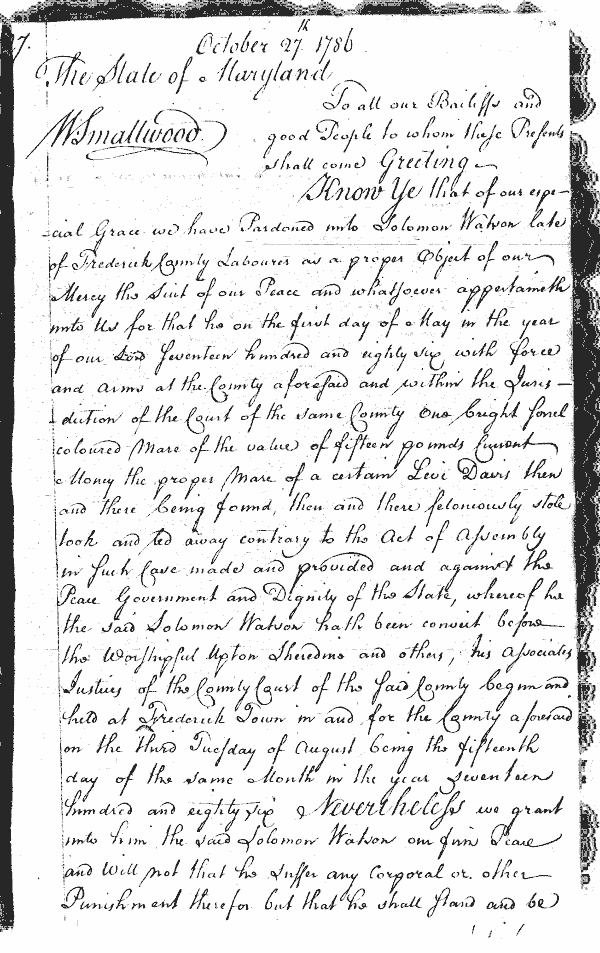 7.
October 27th 1786
The State of Maryland
To all our Bailiffs and
WSmallwood
good People to whom these Presents
shall come Greeting
Know Ye that of our espe-
-cial Grace we have Pardoned unto Solomon Watson late
of Frederick County Labourer as a proper Object of our
Mercy the Suit of our Peace and whatsoever appertaineth
unto Us for that he on the first day of May in the year
of our Lord Seventeen hundred and eighty six with force
and arms at the County aforesaid and within the Juris-
-diction of the Court of the same County One bright sorrel
coloured Mare of the value of fifteen pounds Current
Money the proper Mare of a certain Levi Davis then
and there being found, then and there feloniously stole
took and led away contrary to the Act of Assembly
in such Case made and provided and against the
Peace Government and Dignity of the State, whereof he
the said Solomon Watson hath been convict before
the Worshipful Upton Sheredine and others, his Associates
Justices of the County Court of the said County begun and
held at Frederick Town in and for the County aforesaid
on the third Tuesday of August being the fifteenth
day of the same Month in the year Seventeen
hundred and eighty six Nevertheless we grant
unto him the said Solomon Watson our firm Peace
and Will not that he suffer any Corporal or other
Punishment therefor but that he shall stand and be